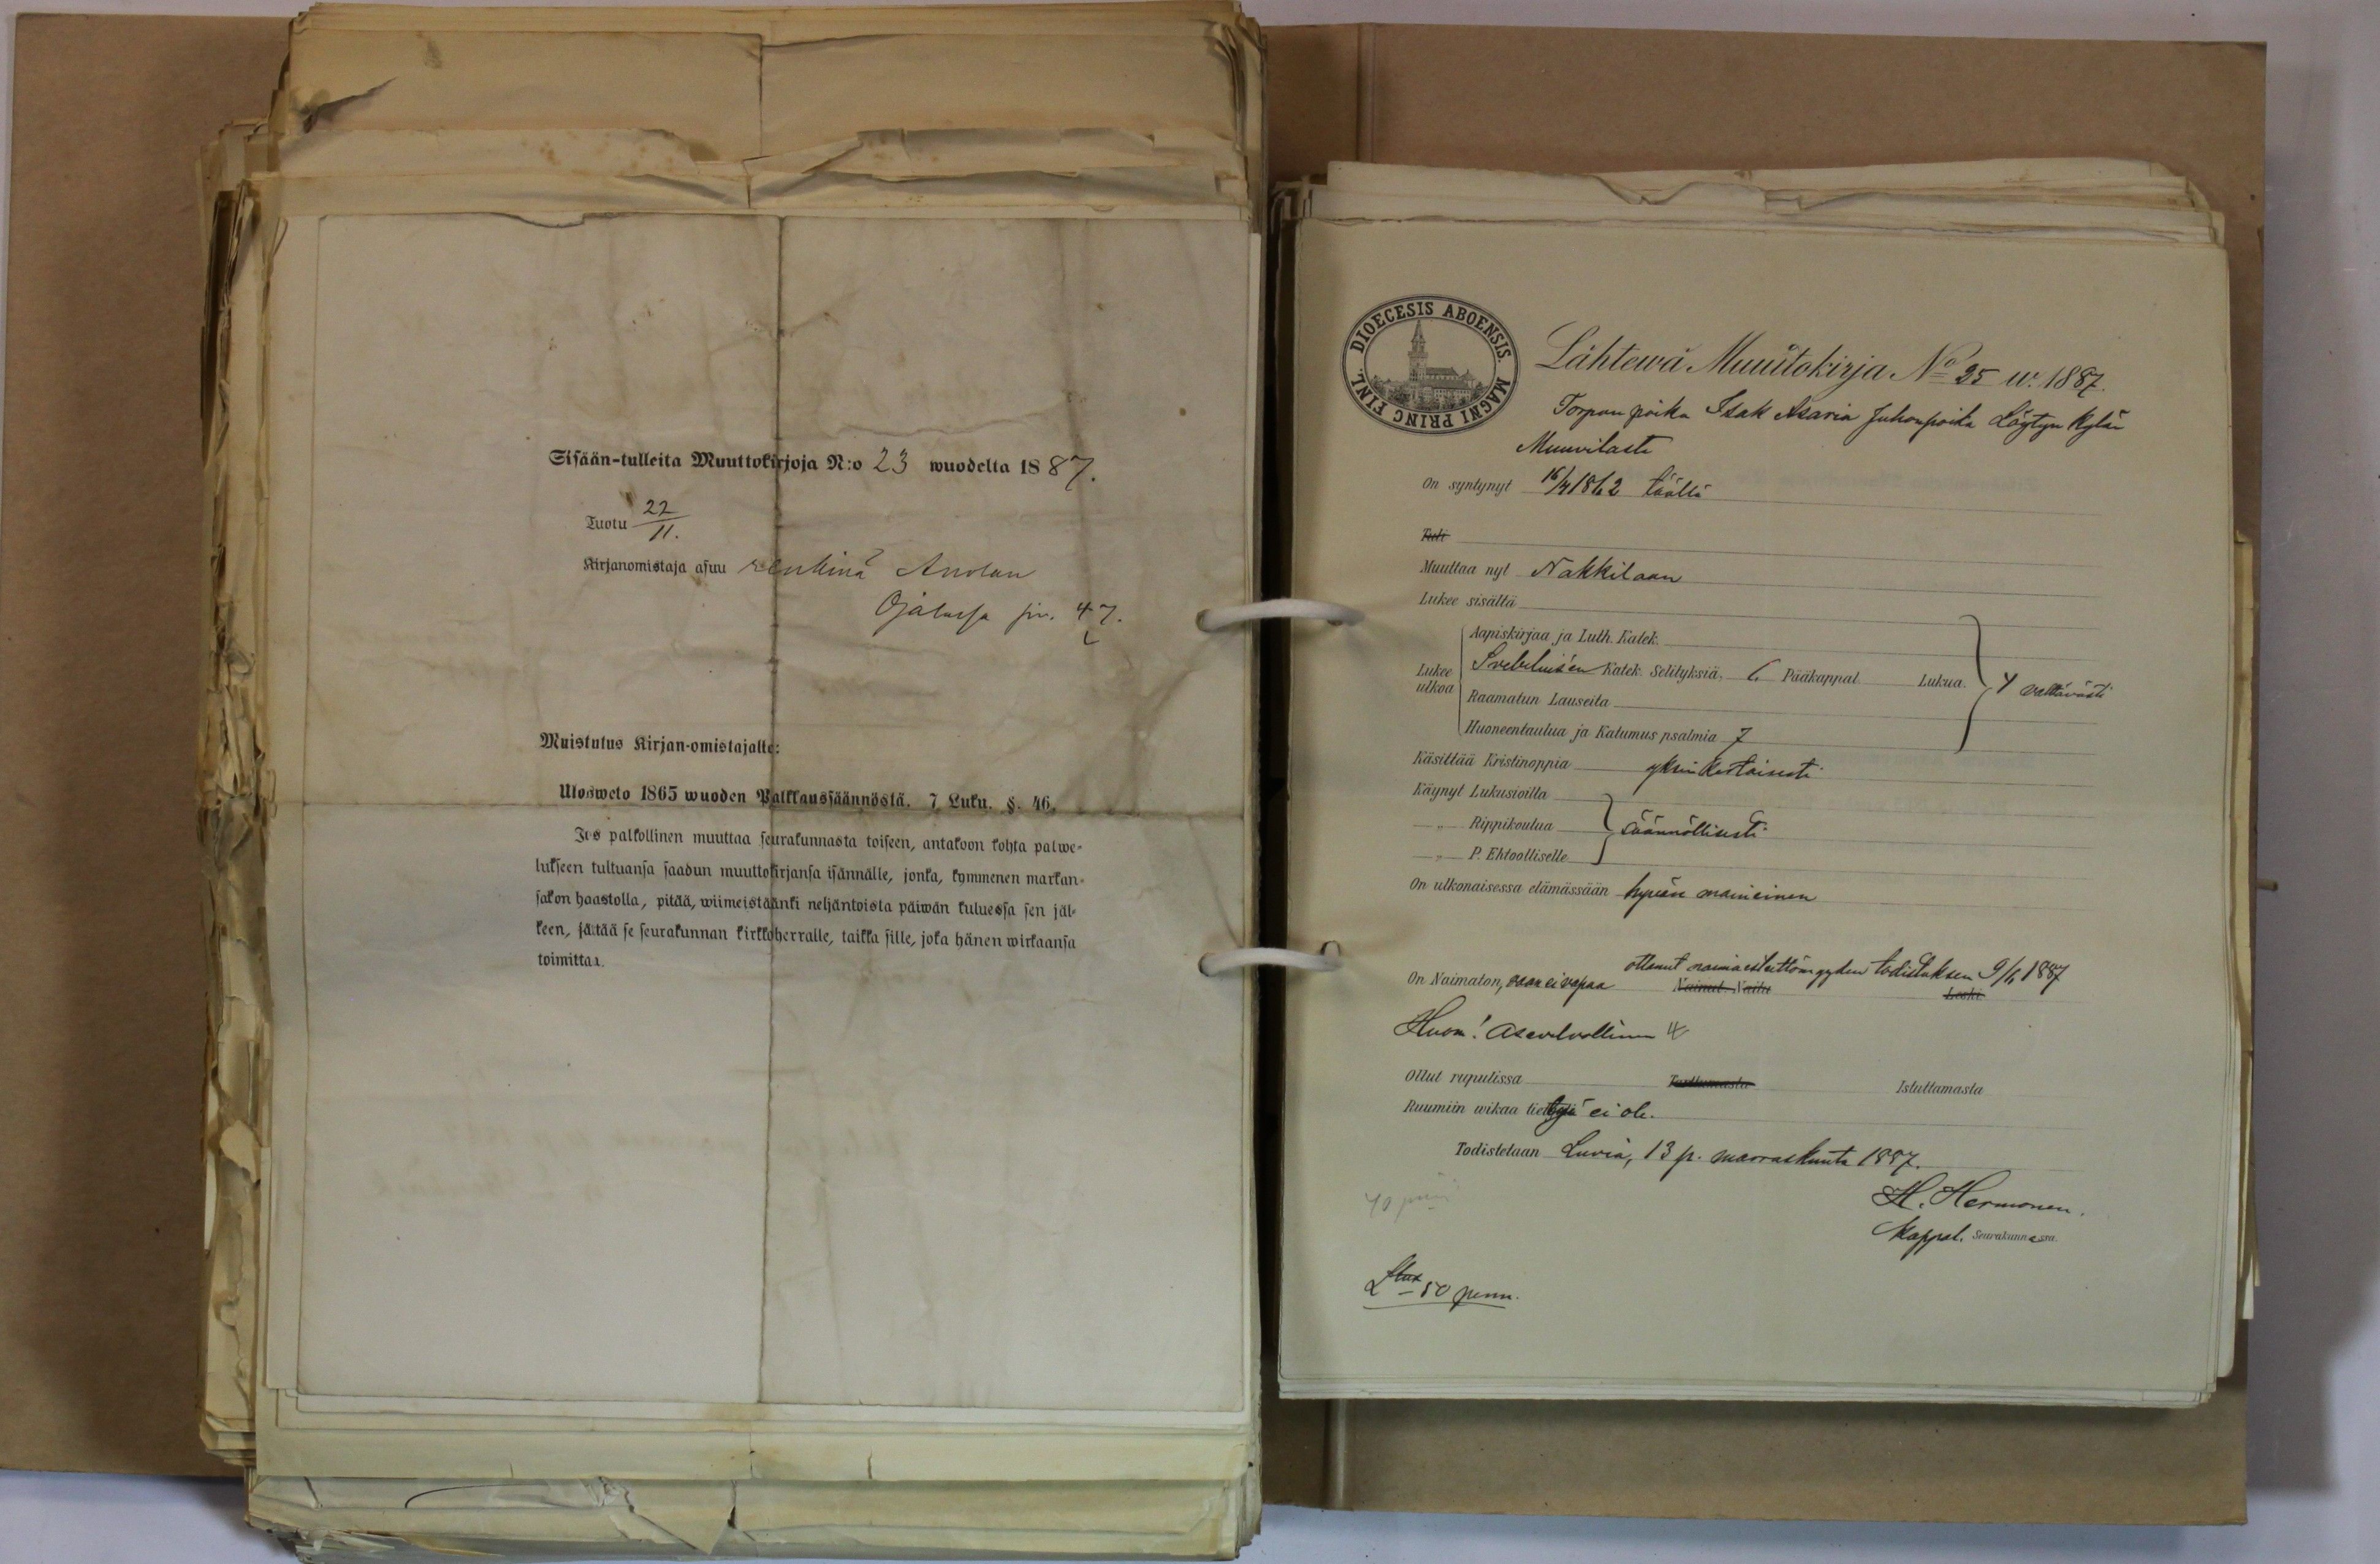 Sisään-tulleita Muuttokirjoja N:o 23 wuodelta 1887.
Tuotu 22/11.
Kirjanomistaja asuu renkinä Anolan
siv. 47.
Muistutus Kirjan-omistajalle:
Ulosweto 1865 wuoden Palkkaussäännöstä. 7 Luku. §. 46.
Jos palkollinen muuttaa seurakunnasta toiseen, antakoon kohta palwe-
lukseen tultuansa saadun muuttokirjansa isännälle, jonka, kymmenen markan
sakon haastolla, pitää, wiimeistäänki neljäntoista päiwän kuluessa sen jäl-
keen, jättää se seurakunnan kirkkoherralle, taikka sille, joka hänen wirkaansa
toimittaa.
DIOECESIS ABOENSIS. MAGNI PRINC FINL.
Lähtewä Muuttokirja No 25 w. 1887.
Torpan poika Isak Asaria Juhonpoika Löytyn kylän
On syntynyt 1862 täällä
Tuli
Muuttaa nyt Nakkilaan
Lukee sisältä
Aapiskirjaa ja Luth. Katek.
Lukee ulkoa Svebiliuksen Katek. Selityksiä, 6 Pääkappal. Lukua. välttävästi
Raamatun Lauseita
Huoneentaulua ja Katumus psalmia 7
Käsittää Kristinoppia yksinkertaisesti
Käynyt Lukusioilla
—„— Rippikoulua säännöllisesti
—„— P. Ehtoolliselle
On ulkonaisessa elämässään hyvän maineinen
ottanut naimaesteettömyyden todistuksen 1887
On Naimaton, vaan ei vapaa Nainut Naitu Leski
Huom! Asevelvollinen
Ollut rupulissa Tarttumasta Istuttamasta
Ruumiin wikaa tiettyä ei ole.
Todistetaan Luvia, 13 p. marraskuuta 1887.
H. Hermonen.
Kappal. Seurakunnassa.
50 penn.